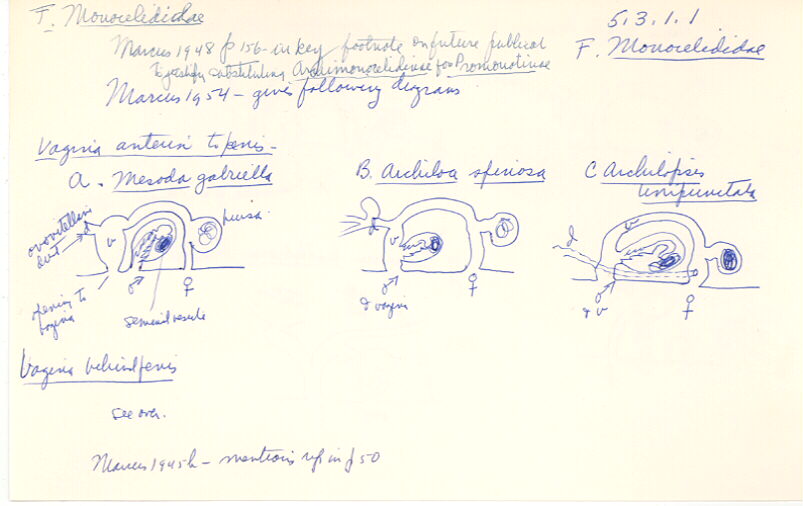 F. Monocelididae
5.3.1.1
F. Monocelididae
Marcus 1948 p 156 - in key footnote on future publicat
to justify substituting Archimonocelidinae for Promonotinae
Marcus 1954 - gives following diagrams
Vagina anterior to penis -
A. Mesoda gabriella
B. Archiloa spinosa
C Archilopsis unipunctata
ovovitelline duct
d
v
bursa
opening to vagina
♂
seminal vesicle
♀
d
v
♂
& vagina
♀
d
v
♂
& v
♀
Vagina behind penis
see over.
Marcus 1945b - mentions refs in p 50